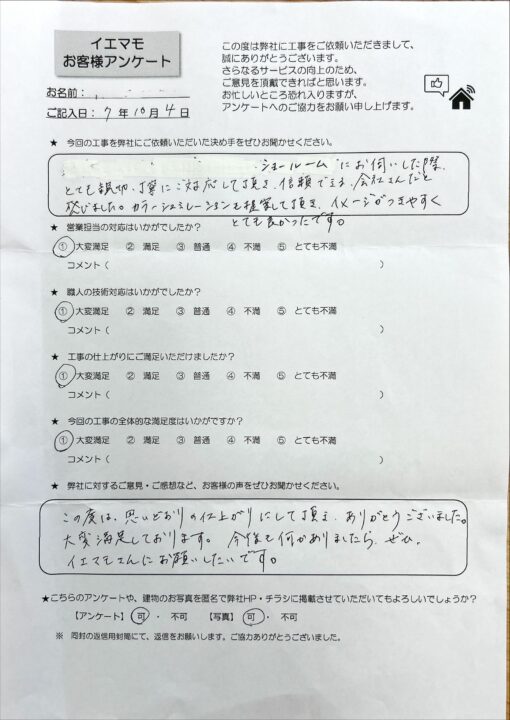 イエマモ
お客様アンケート
この度は弊社に工事をご依頼いただきまして、
誠にありがとうございます。
さらなるサービスの向上のため、
ご意見を頂戴できればと思います。
お忙しいところ恐れ入りますが、
アンケートへのご協力をお願い申し上げます。
お名前：
ご記入日：7年10月4日
★ 今回の工事を弊社にご依頼いただいた決め手をぜひお聞かせください。
ショールームにお伺いした際、
とても親切、丁寧にご対応して頂き、信頼できる、会社さんだと
感じました。カラーシュミレーションも提案して頂き、イメージがつきやすく
とても良かったです。
★ 営業担当の対応はいかがでしたか？
① 大変満足 ② 満足 ③ 普通 ④ 不満 ⑤ とても不満
コメント（ ）
★ 職人の技術対応はいかがでしたか？
① 大変満足 ② 満足 ③ 普通 ④ 不満 ⑤ とても不満
コメント（ ）
★ 工事の仕上がりにご満足いただけましたか？
① 大変満足 ② 満足 ③ 普通 ④ 不満 ⑤ とても不満
コメント（ ）
★ 今回の工事の全体的な満足度はいかがですか？
① 大変満足 ② 満足 ③ 普通 ④ 不満 ⑤ とても不満
コメント（ ）
★ 弊社に対するご意見・ご感想など、お客様の声をぜひお聞かせください。
この度は、思いどおりの仕上がりにして頂き、ありがとうございました。
大変満足しております。今後も何かありましたら、ぜひ、
イエマモさんにお願いしたいです。
★こちらのアンケートや、建物のお写真を匿名で弊社HP・チラシに掲載させていただいてもよろしいでしょうか？
【アンケート】 可 ・ 不可 【写真】 可 ・ 不可
※ 同封の返信用封筒にて、返信をお願いします。ご協力ありがとうございました。